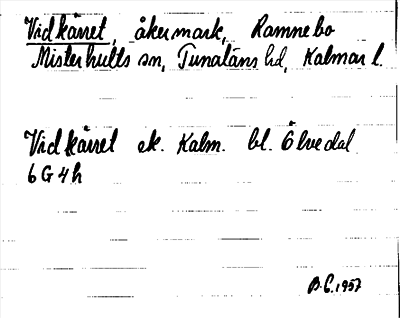 Vidkärret, åkermark, Ramnebo
Misterhults sn, Tunaläns hd, Kalmar l.
Vidkärret ek. Kalm. bl. Ölvedal
6 G 4 h
B.C. 1957